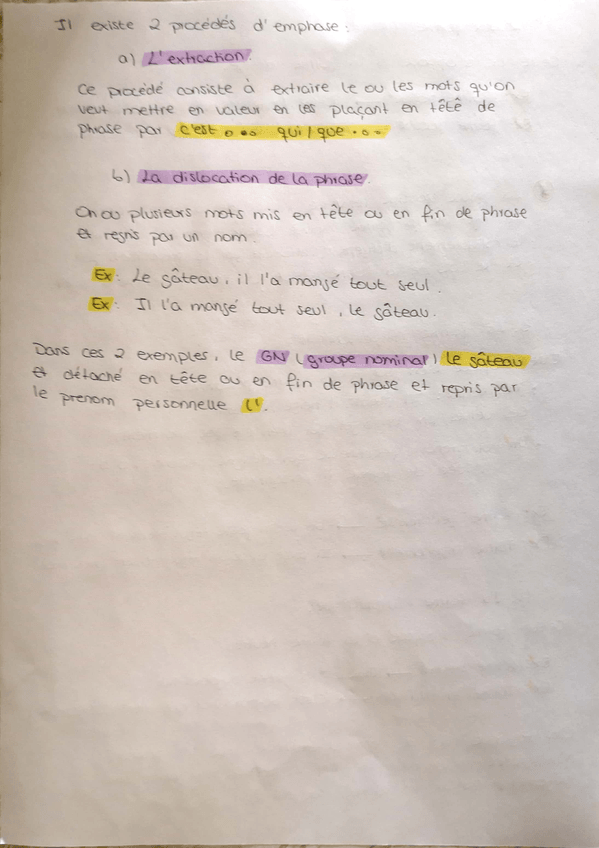 Il existe 2 procédés d'emphase :
a) L'extraction.
Ce procédé consiste à extraire le ou les mots qu'on
veut mettre en valeur en les plaçant en têtê de
phrase par c'est ... qui / que ...
b) La dislocation de la phrase.
On ou plusieurs mots mis en tête ou en fin de phrase
et repris par un nom.
Ex : Le gâteau, il l'a mangé tout seul.
Ex : Il l'a mangé tout seul, le gâteau.
Dans ces 2 exemples, le GN (groupe nominal) le gâteau
et détaché en tête ou en fin de phrase et repris par
le prenom personnelle l'.